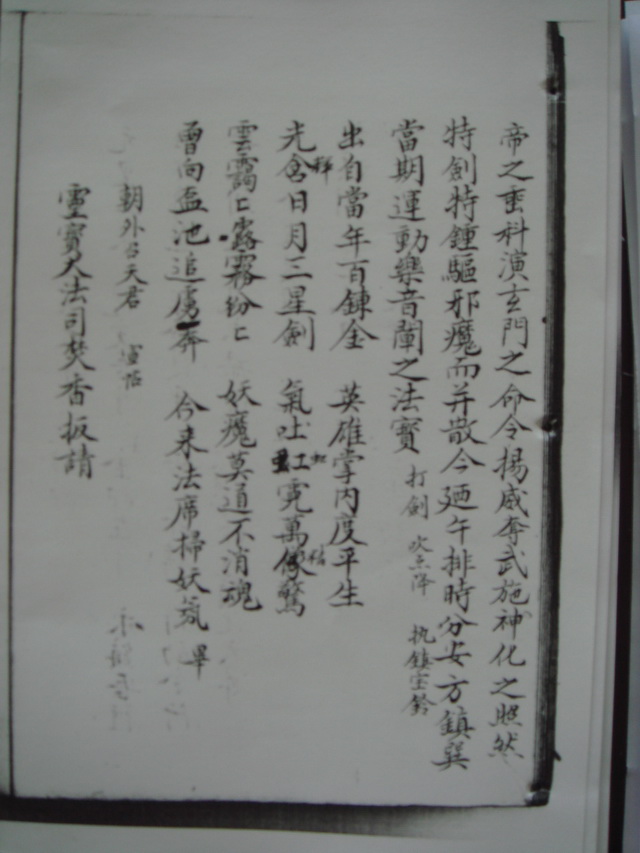 帝之重科演玄門之命令揚威奪武施神化之照然
特劍特鍾驅邪魔而并散今廼午排時分安方鎮巽
當期運動樂音闡之法寶 打劍 吹 降 执鎮宝鈴
出自當年百鍊金 英雄掌內度平生
光含日月三星劍 氣吐虹霓萬像驚
雲靄匕露霧纷匕 妖魔莫道不消魂
曾向盃池追虜奔 今来法席掃妖氛 畢
朝外召天君
霊寳大法司焚香扳請